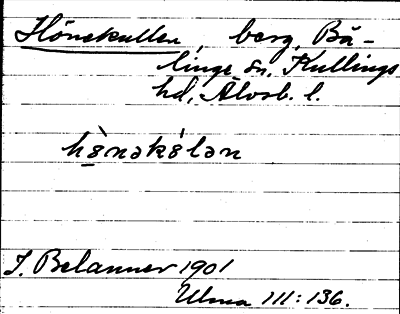 Hönekullen, berg, Bä-
linge sn, Kullings
hd, Älvsb. l.
hö̀nəkö́lən
J. Belanner 1901
Ulma 111:136.